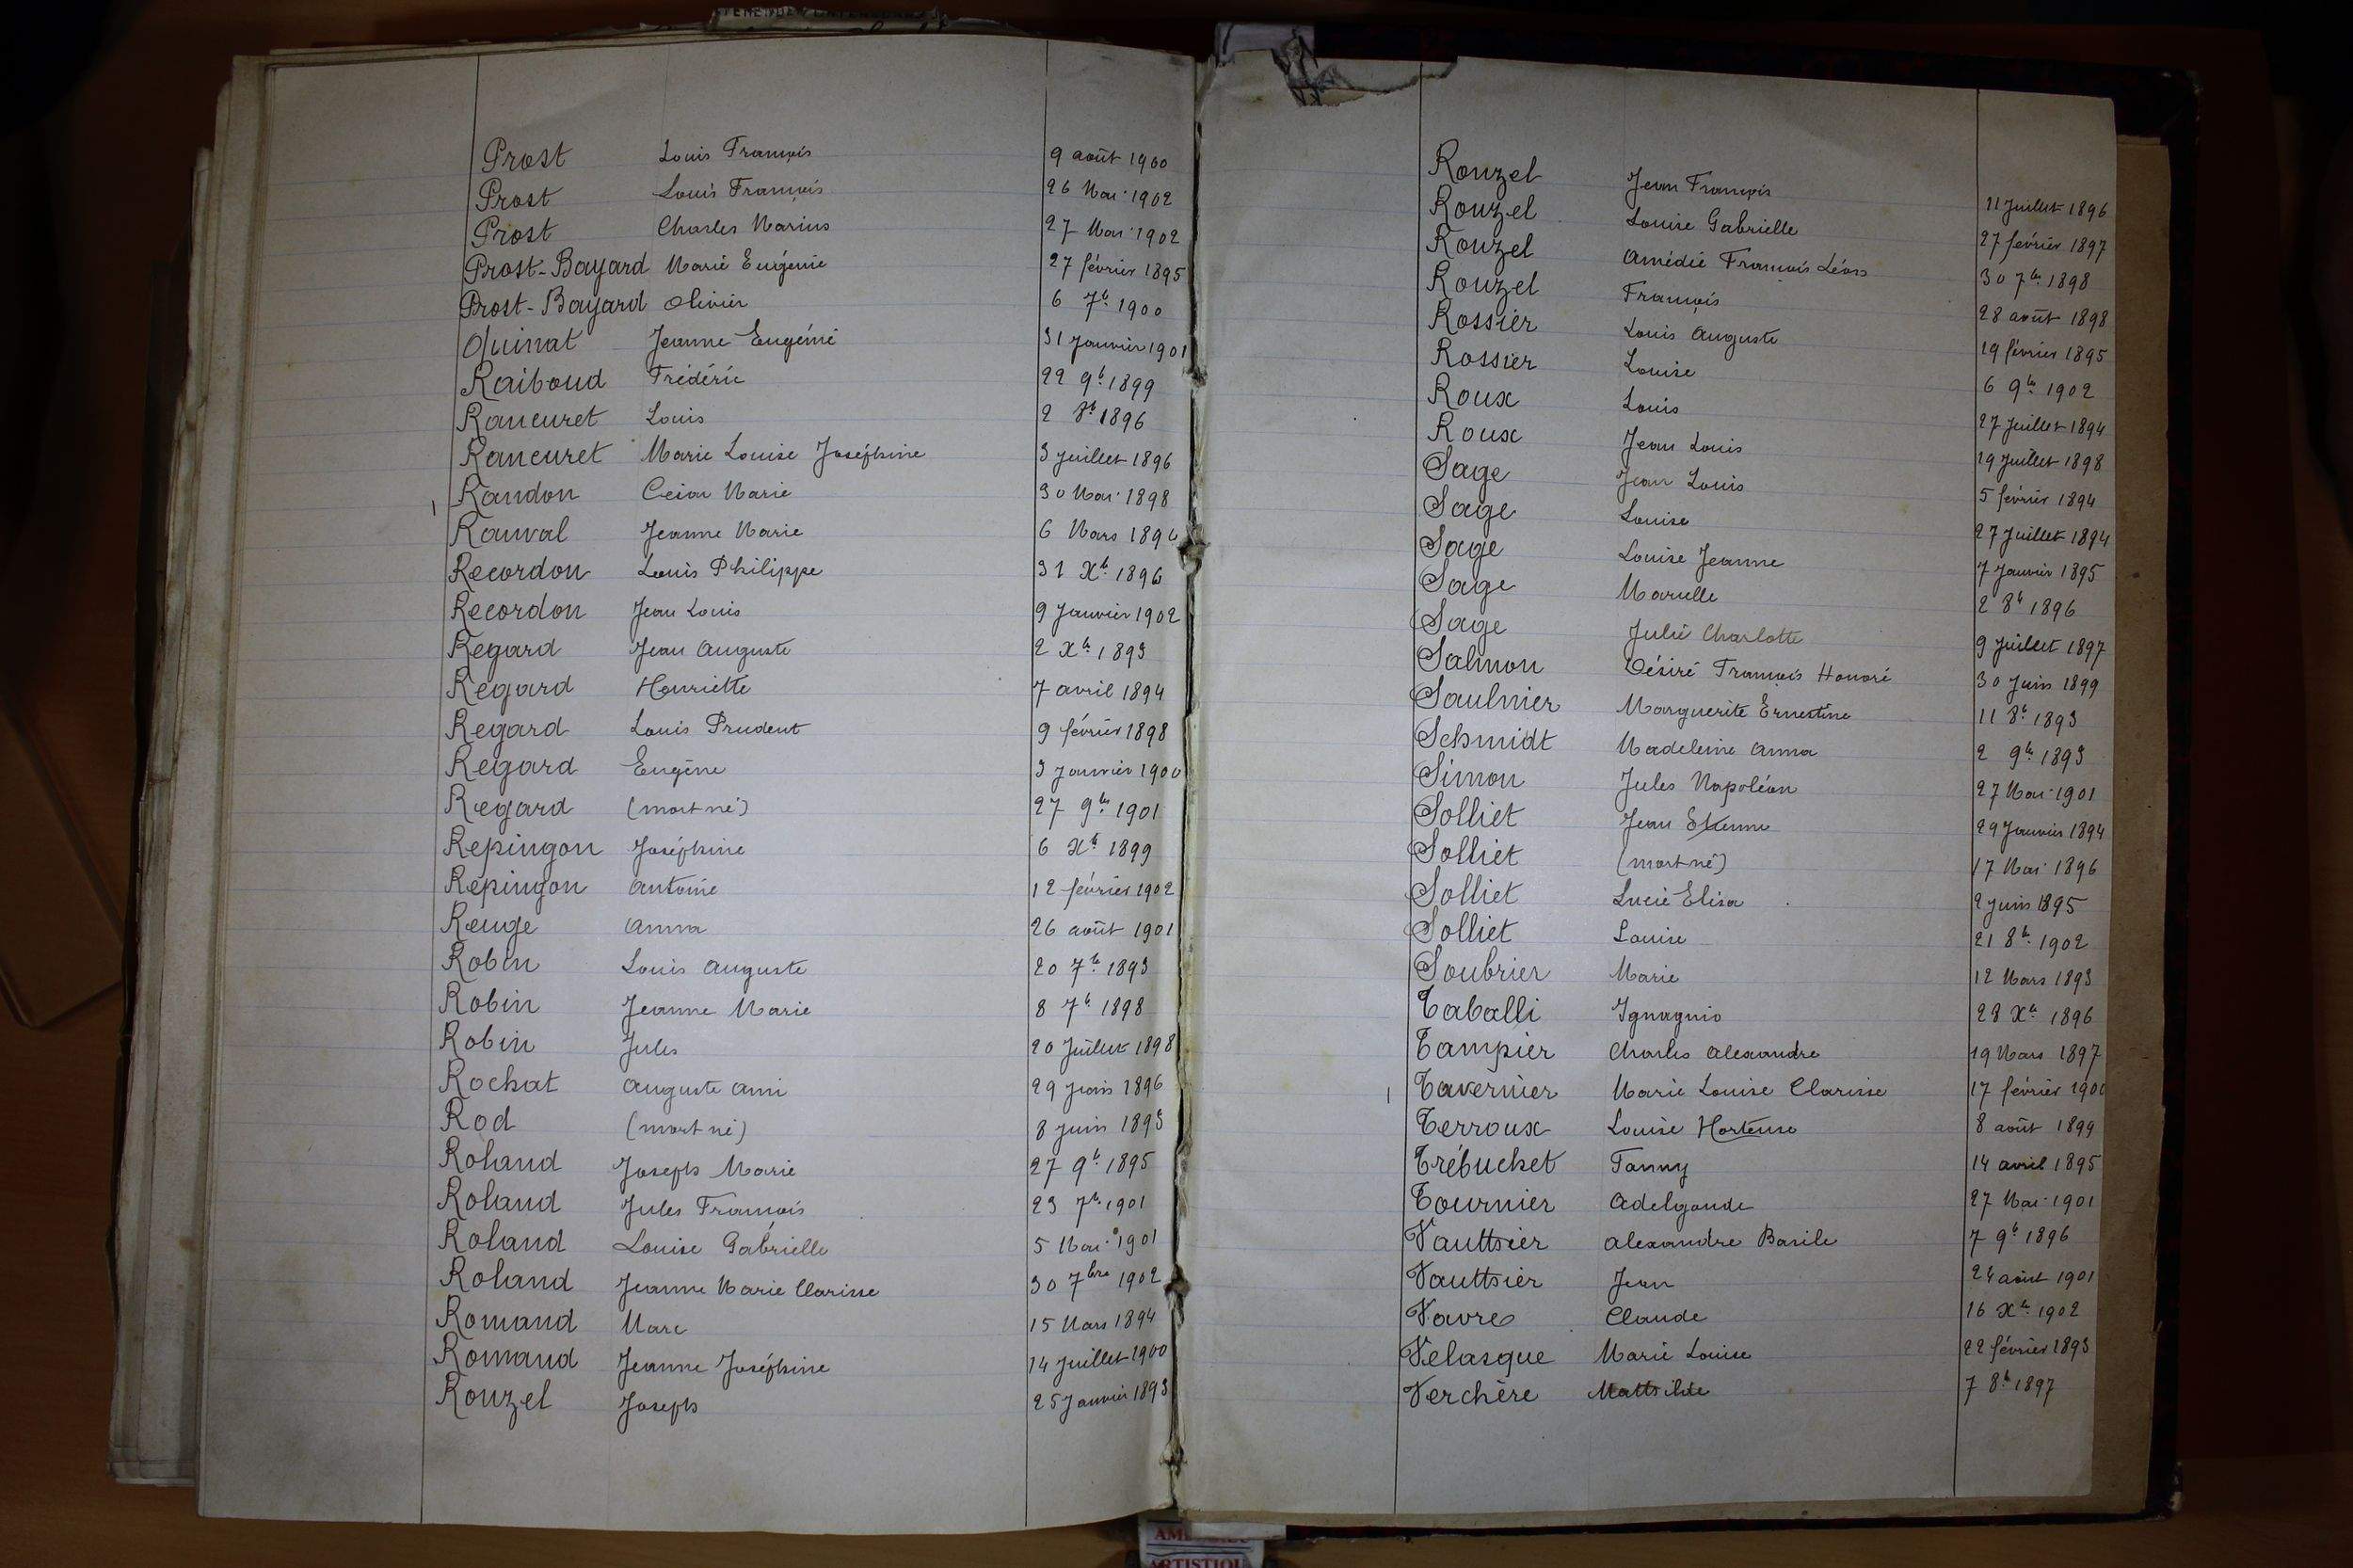 Prost Louis François 9 août 1900
Prost Louis François 26 Mai 1902
Prost Charles Marius 27 Mai 1902
Prost-Bayard Marie Eugénie 27 février 1895
Prost-Bayard Olivier 6 7b. 1900
Quinat Jeanne Eugénie 31 Janvier 1901
Raiboud Frédéric 22 9b. 1899
Rancuret Louis 2 8b 1896
Rancuret Marie Louise Joséphine 3 Juillet 1896
1 Randon César Marie 30 Mai 1898
Rauval Jeanne Marie 6 Mars
Recordon Louis Philippe 31 Xb. 1896
Recordon Jean Louis 9 Janvier 1902
Regard Jean Auguste 2 Xb. 1893
Regard Henriette 7 avril 1894
Regard Louis Prudent 9 février 1898
Regard Eugène 3 Janvier 1900
Regard (mort né) 27 9bre 1901
Repingon Joséphine 6 Xb. 1899
Repingon Antoine 12 février 1902
Reuge Anna 26 août 1901
Robin Louis Auguste 20 7b. 1893
Robin Jeanne Marie 8 7b. 1898
Robin Jules 20 Juillet 1898
Rochat Auguste Ami 29 Juin 1896
Rod (mort né) 8 Juin 1893
Roland Joseph Marie 27 9b. 1895
Roland Jules François 23 7b. 1901
Roland Louise Gabrielle 5 Mai 1901
Roland Jeanne Marie Clarisse 30 7bre 1902
Romand Marc 15 Mars 1894
Romand Jeanne Joséphine 14 Juillet 1900
Rouzel Joseph 25 Janvier 1893
Rouzel Jean François 11 Juillet 1896
Rouzel Louise Gabrielle 27 février 1897
Rouzel Amédée François Léon 30 7b. 1898
Rouzel François 28 août 1898
Rossier Louis Auguste 19 février 1895
Rossier Louise 6 9b. 1902
Roux Louis 27 Juillet 1894
Roux Jean Louis 19 Juillet 1898
Sage Jean Louis 5 février 1894
Sage Louise 27 Juillet 1894
Sage Louise Jeanne 7 Janvier 1895
Sage Marielle 2 8b 1896
Sage Julie Charlotte 9 Juillet 1897
Salmon Désiré François Honoré 30 Juin 1899
Saulnier Marguerite Ernestine 11 8b. 1893
Schmidt Madeleine Anna 2 9b. 1893
Simon Jules Napoléon 27 Mai 1901
Solliet Jean Etienne 29 Janvier 1894
Solliet (mort né) 17 Mai 1896
Solliet Lucie Elisa 2 Juin 1895
Solliet Louise 21 8b. 1902
Soubrier Marie 12 Mars 1893
Taballi Ignagnio 28 Xb. 1896
Tampier Charles Alexandre 19 Mars 1897
1 Tavernier Marie Louise Clarisse 17 février 1900
Terroux Louise Hortense 8 août 1899
Trébuchet Fanny 14 avril 1895
Tournier Adelgonde 27 Mai 1901
Vautthier Alexandre Basile 7 9b. 1896
Vautthier Jean 24 août 1901
Vavre Claude 16 Xb. 1902
Velasque Marie Louise 22 février 1893
Verchère Mathilde 7 8b. 1897
ARTISTIQU